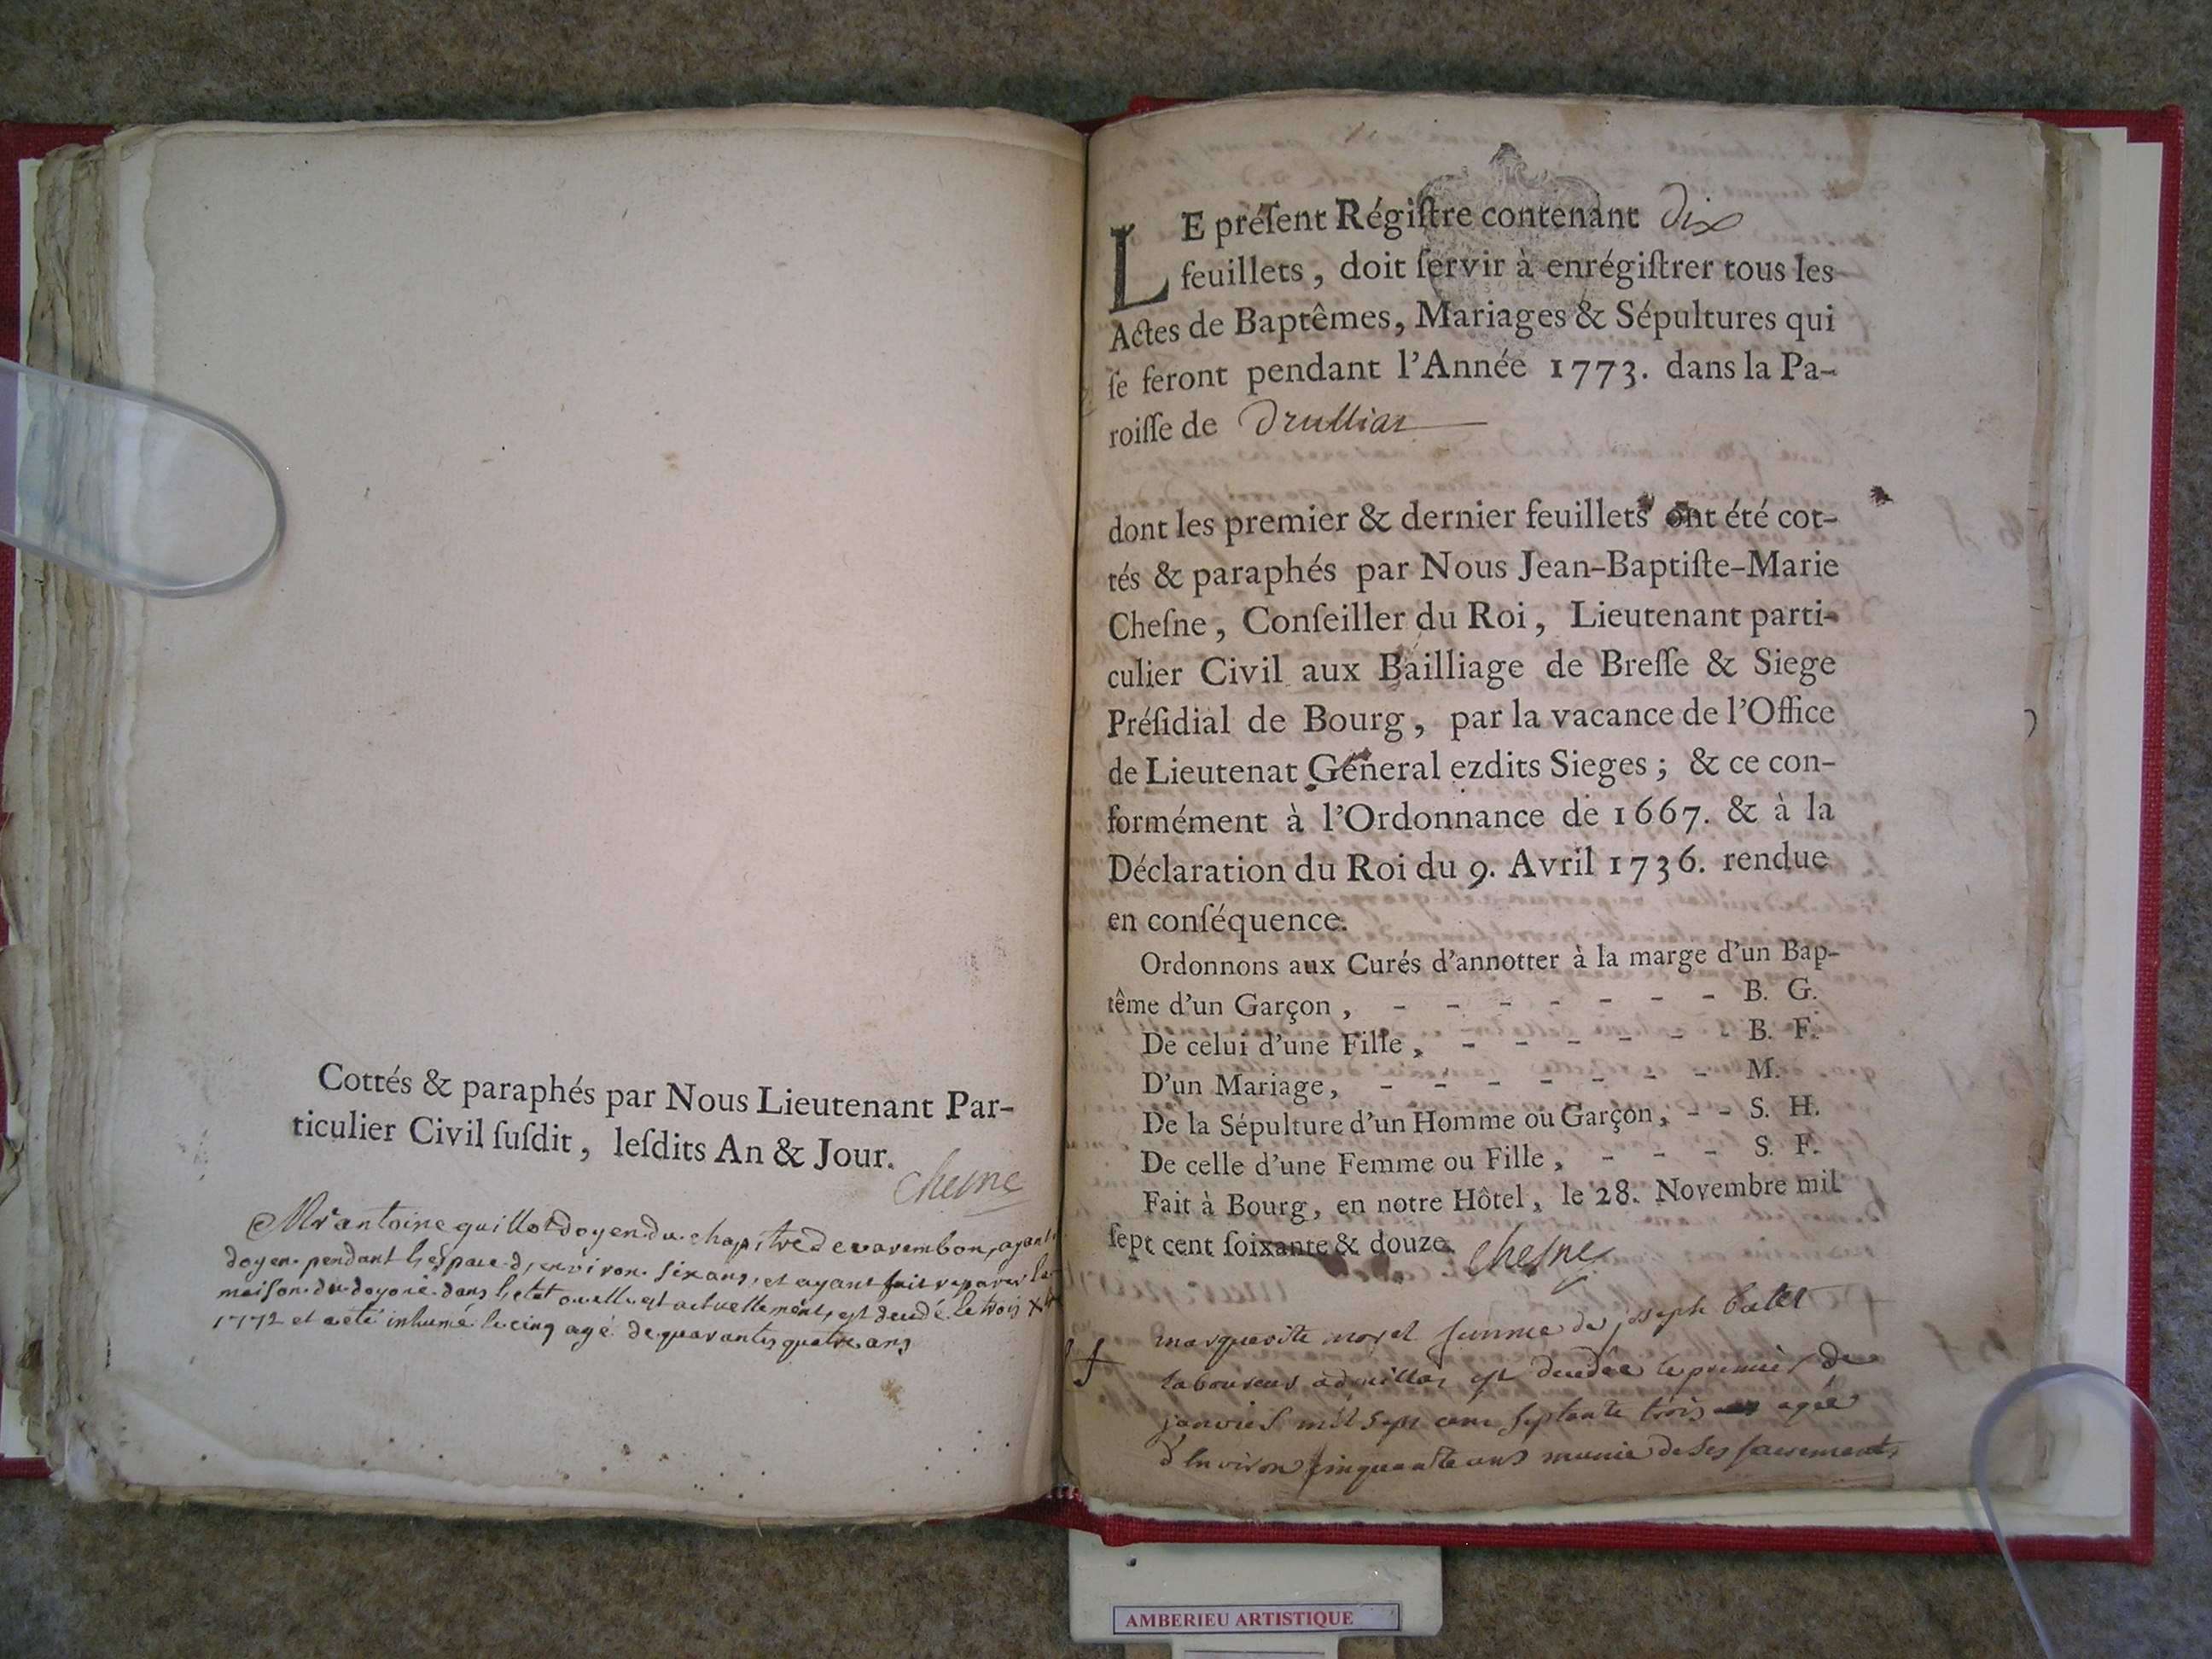 Cottés & paraphés par Nous Lieutenant Par-
ticulier Civil ſuſdit, leſdits An & Jour.
Chesne
Mr antoine guillot doyen du chapitre de varembon, ayant
doyen pendant l'espace d'environ six ans, et ayant fait reparer la
maison du doyoné dans l'etat ou elle est actuellement, est decedé le trois Xbre
1772 et a eté inhumé le cinq agé de quarante quatre ans
LE préſent Régiſtre contenant Dix
feuillets, doit ſervir à enrégiſtrer tous les
Actes de Baptêmes, Mariages & Sépultures qui
ſe feront pendant l'Année 1773. dans la Pa-
roiſſe de Druilliat
dont les premier & dernier feuillets ont été cot-
tés & paraphés par Nous Jean-Baptiſte-Marie
Cheſne, Conſeiller du Roi, Lieutenant parti-
culier Civil aux Bailliage de Breſſe & Siege
Préſidial de Bourg, par la vacance de l'Office
de Lieutenat Géneral ezdits Sieges; & ce con-
formément à l'Ordonnance de 1667. & à la
Déclaration du Roi du 9. Avril 1736. rendue
en conſéquence.
Ordonnons aux Curés d'annotter à la marge d'un Bap-
tême d'un Garçon, - - - - - - - B. G.
De celui d'une Fille, - - - - - - B. F.
D'un Mariage, - - - - - - - M.
De la Sépulture d'un Homme ou Garçon, - - S. H.
De celle d'une Femme ou Fille, - - - S. F.
Fait à Bourg, en notre Hôtel, le 28. Novembre mil
ſept cent ſoixante & douze. Cheſne
marguerite morel femme de joseph
laboureur a druillat est decedée le premier de
janvier mil sept cent septante trois agée
d'environ cinquante ans munie de ses sacrements
AMBERIEU ARTISTIQUE